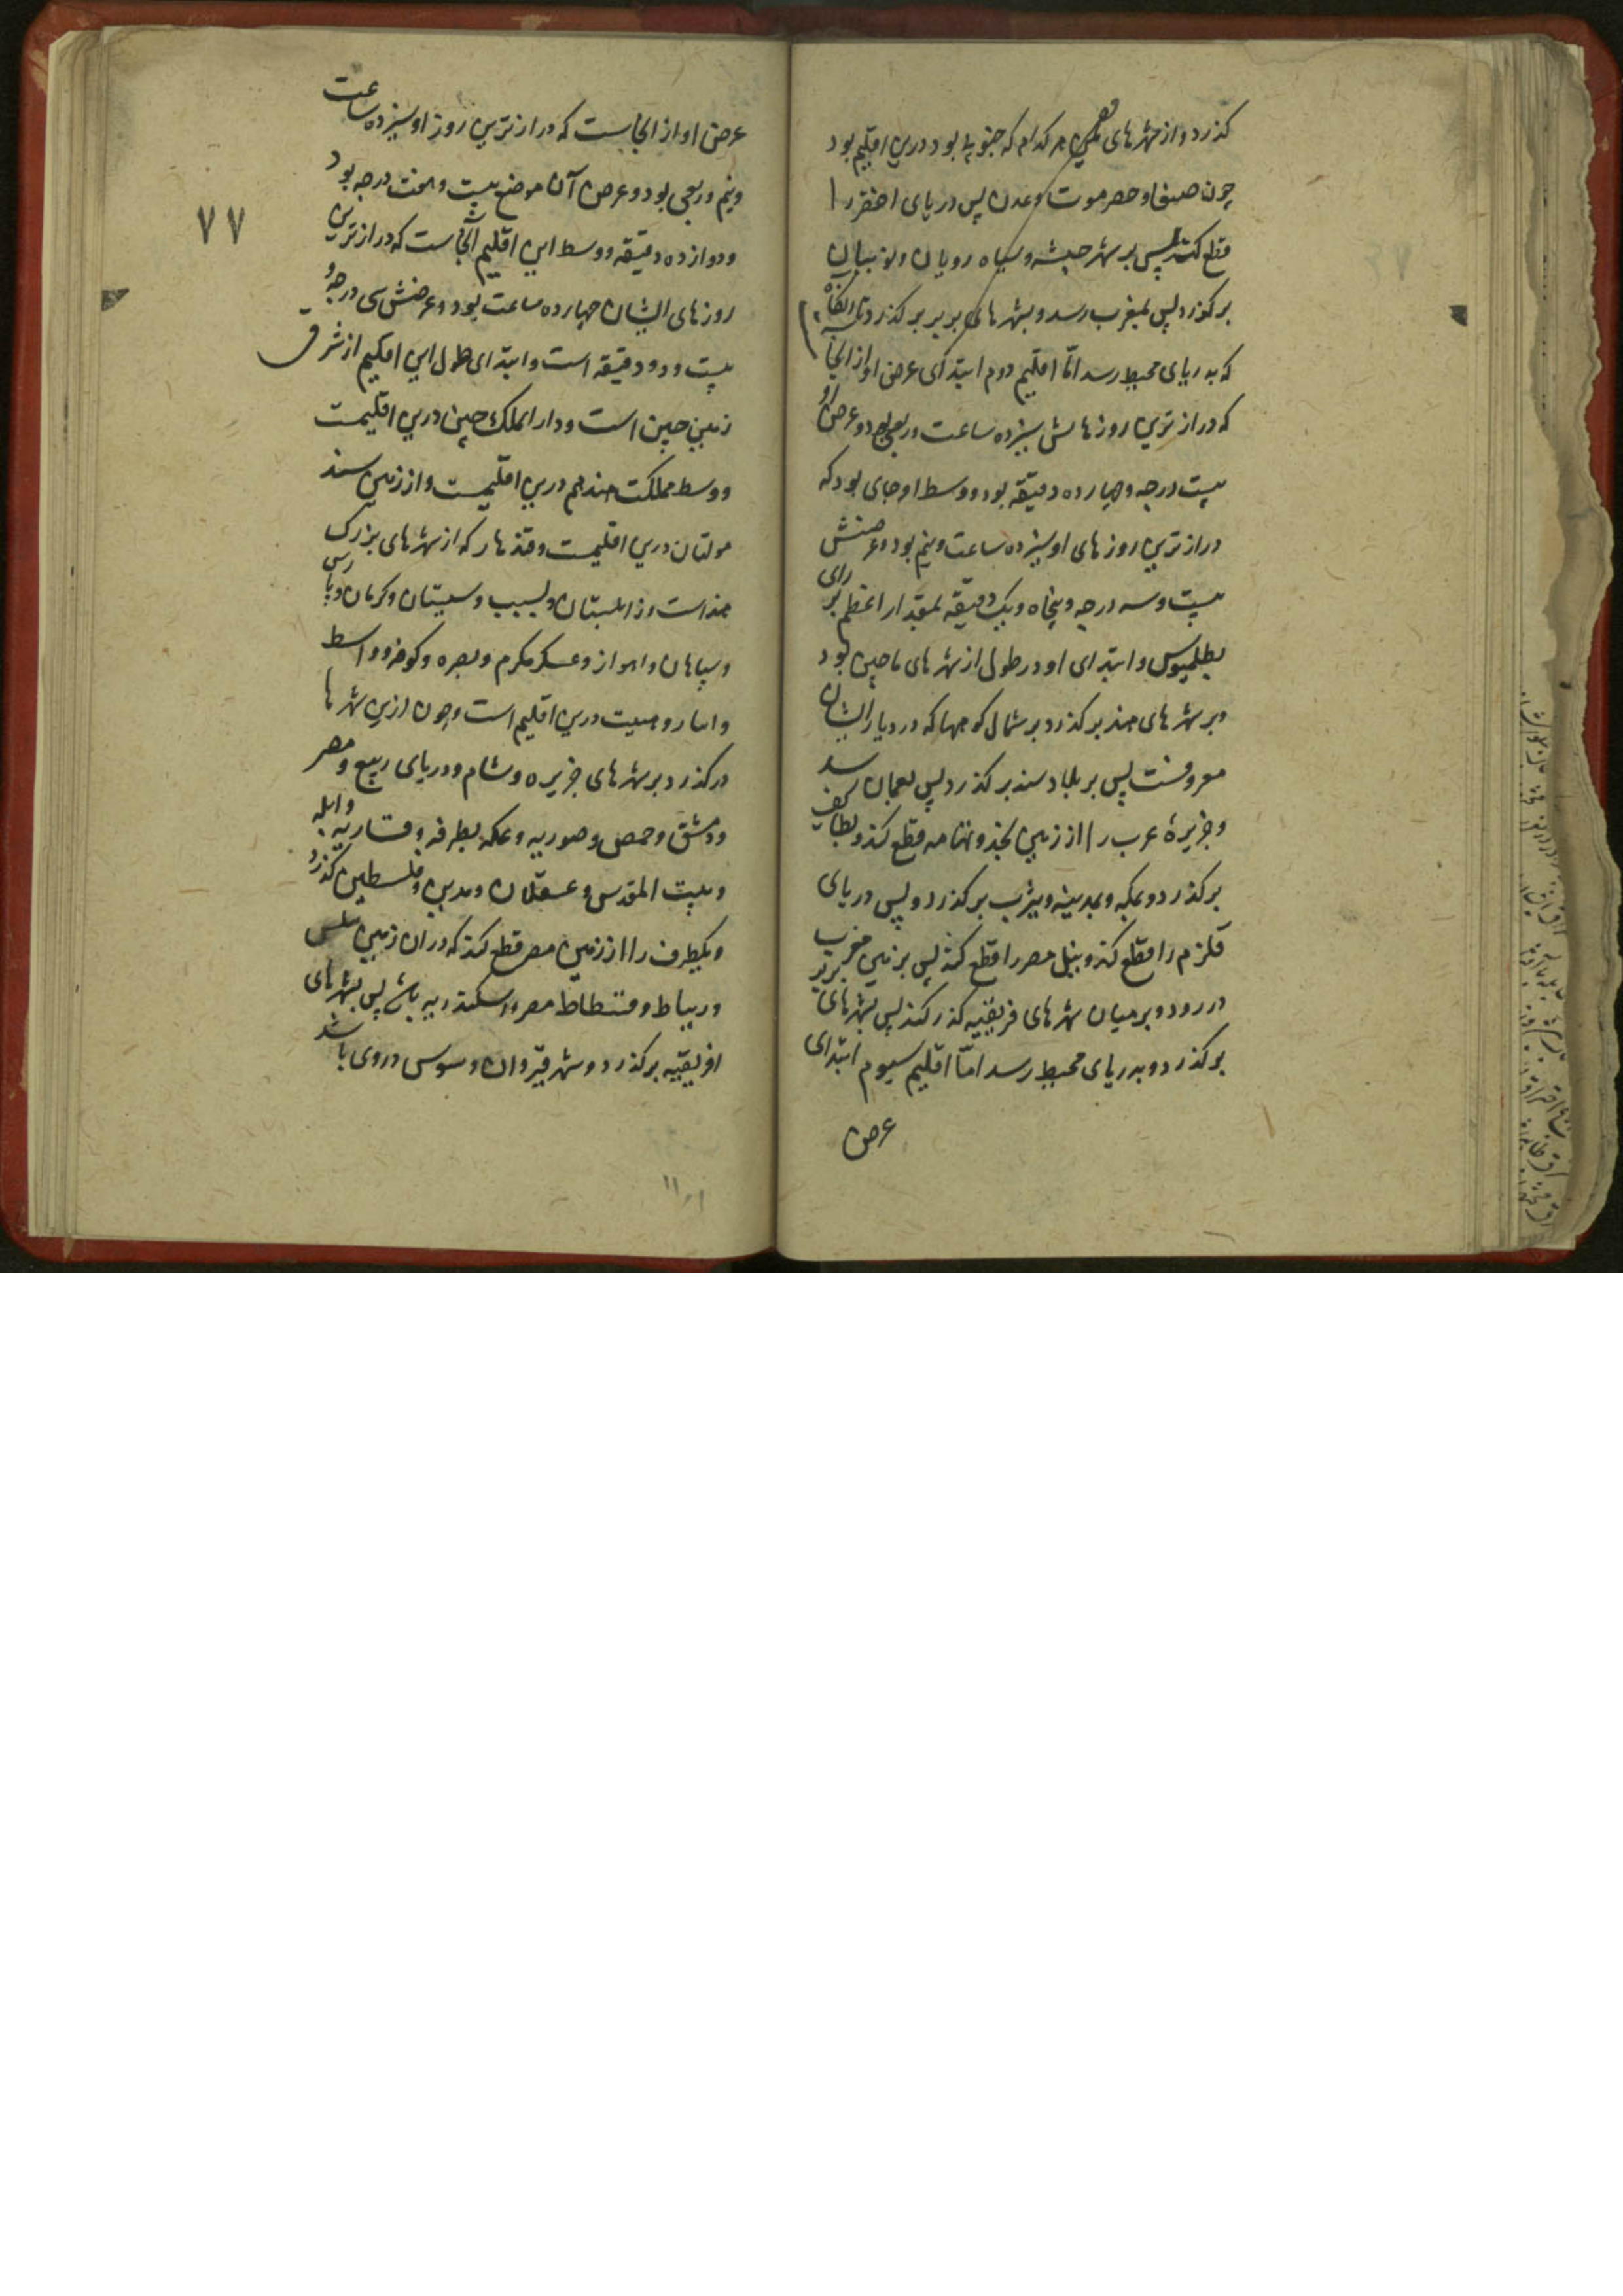 گذرد و از شهرهای یمن هر کدام که جنوبی بود درین اقلیم بود
چون صنعا و حضرموت و عدن پس دریای اخضر را
قطع کند پس بر شهر حبشه و سیاه رویان و نوبیان
برگذرد پس بمغرب رسد و بشهرهای بربر برگذرد تا آنگاه
که بدریای محیط رسد امّا اقلیم دوم ابتدای عرض او از آنجا
که درازترین روزهایش سیزده ساعت و ربعی بود و عرض او
بیست درجه و چهارده دقیقه بود و وسط او جای بود که
درازترین روزهای او سیزده ساعت و نیم بود و عرضش
بیست و سه درجه و پنجاه و یک دقیقه بمقدار اعظم بر رای
بطلمیوس و ابتدای او در طول از شهرهای ماچین بود
و بر شهرهای هند برگذرد بر شمال کوهها که در دیار ایشان
معروفست پس بر بلاد سند برگذرد پس بعمان رسد
و جزیرهٔ عرب را از زمین نجد و تهامه قطع کند و بطایف
برگذرد و بمکه و بمدینه و یثرب برگذرد و پس دریای
قلزم را قطع کند و بنیل مصر را قطع کند پس بزمین مغرب
در رود و بر میان شهرهای فریقیه گذر کند پس بشهرهای بربر
برگذرد و بدریای محیط رسد امّا اقلیم سیوم ابتدای
عرض
۷۷
عرض او از آنجاست که درازترین روز او سیزده ساعت
و نیم و ربعی بود و عرض آن موضع بیست و هفت درجه بود
و دوازده دقیقه و وسط این اقلیم آنجاست که درازترین
روزهای ایشان چهارده ساعت بود و عرضش سی درجه و
بیست و دو دقیقه است و ابتدای طول این اقلیم از شرق
زمین چین است و دار الملک چین درین اقلیمست
و وسط مملکت هند هم درین اقلیمست و از زمین سند
مولتان درین اقلیمست و قندهار که از شهرهای بزرگ
هند است و زابلستان و سیستان و کرمان و پارس
و سپاهان و اهواز و عسکر مکرم و بصره و کوفه و واسط
و انبار و هیت درین اقلیم است و چون ازین شهرها
درگذرد بر شهرهای جزیره و شام و دریای ربیع و مصر
و دمشق و حمص و صوریه و عکه و قساریه و ایله
و بیت المقدس و عسقلان و مدین و فلسطین گذرد
و یکطرف را از زمین مصر قطع کند که دران زمین
و فسطاط مصر و اسکندریه باشد پس بشهرهای
افریقیه برگذرد و شهر قیروان و سوس در وی باشد